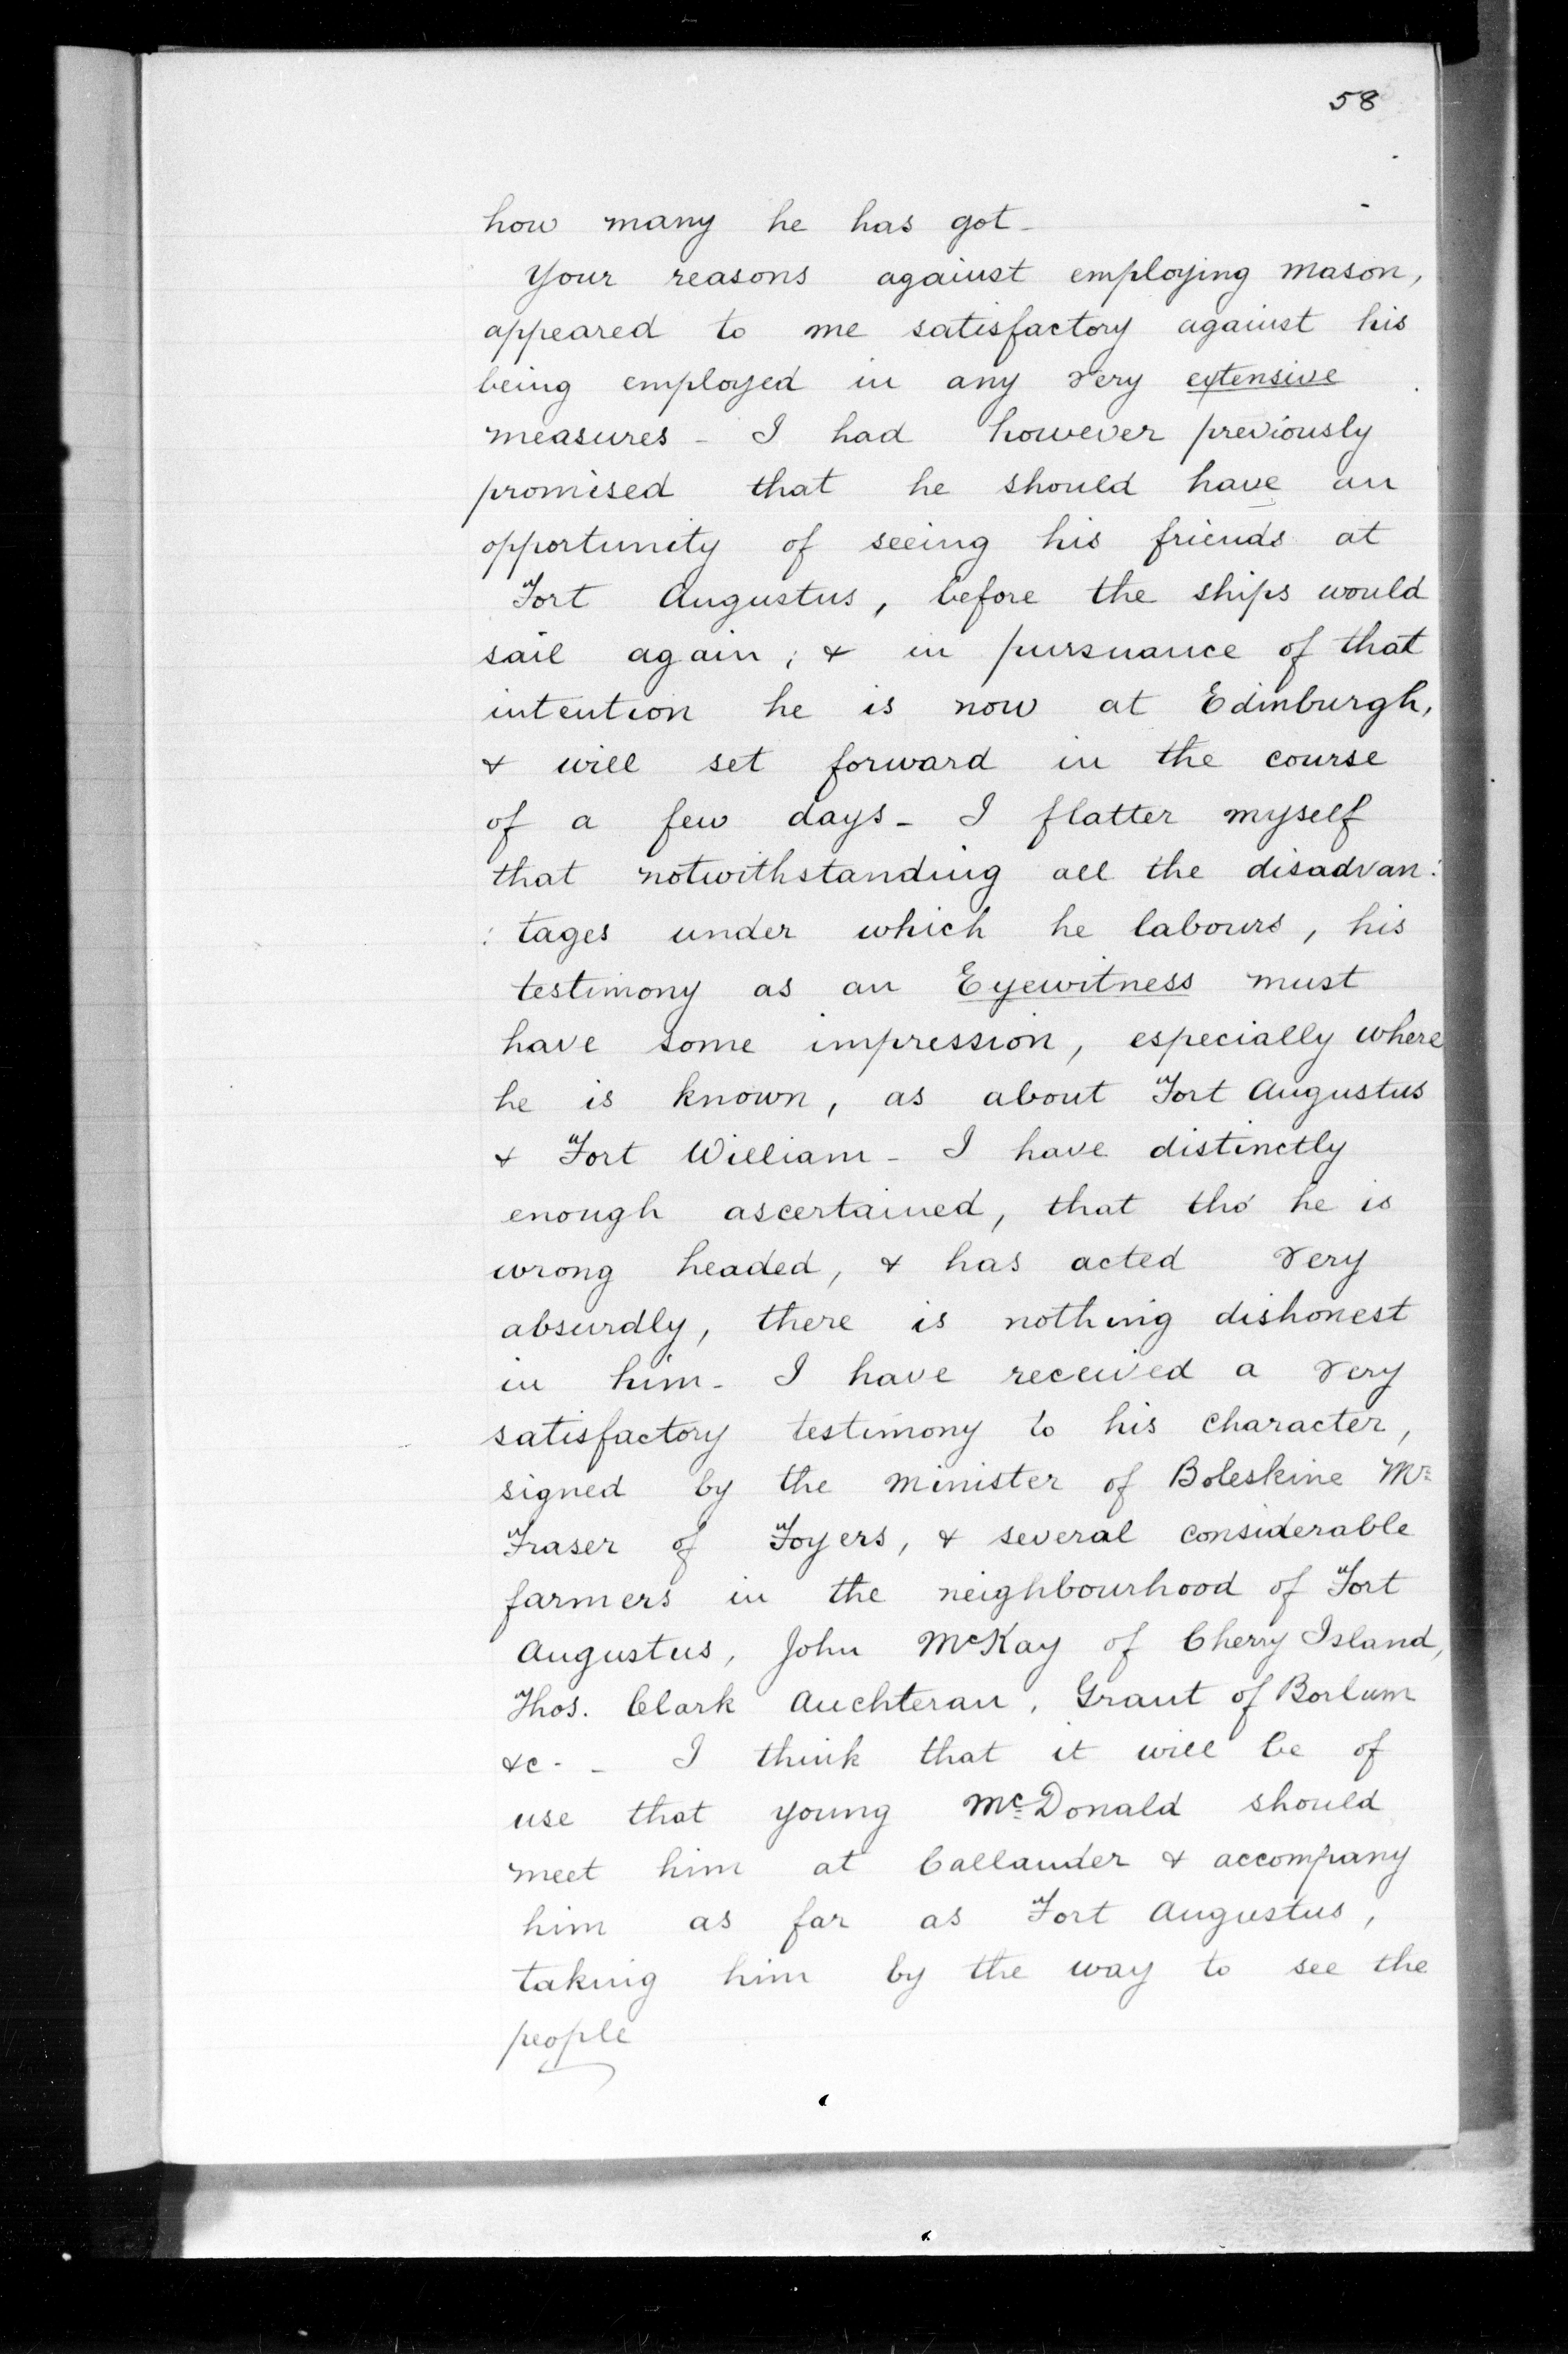 58
how many he has got -
Your reasons against employing mason,
appeared to me satisfactory against his
being employed in any very extensive
measures - I had however previously
promised that he should have an
opportunity of seeing his friends at
Fort Augustus, before the ships would
sail again; & in pursuance of that
intention he is now at Edinburgh,
& will set forward in the course
of a few days - I flatter myself
that notwithstanding all the disadvan:
:tages under which he labours, his
testimony as an Eyewitness must
have some impression, especially where
he is known, as about Fort Augustus
& Fort William - I have distinctly
enough ascertained, that tho' he is
wrong headed, & has acted very
absurdly, there is nothing dishonest
in him - I have received a very
satisfactory testimony to his character,
signed by the minister of Boleskine Mr
Fraser of Foyers, & several considerable
farmers in the neighbourhood of Fort
Augustus, John McKay of Cherry Island,
Thos. Clark Auchterau, Grant of Borlum
&c - - I think that it will be of
use that young McDonald should
meet him at Callander & accompany
him as far as Fort Augustus,
taking him by the way to see the
people